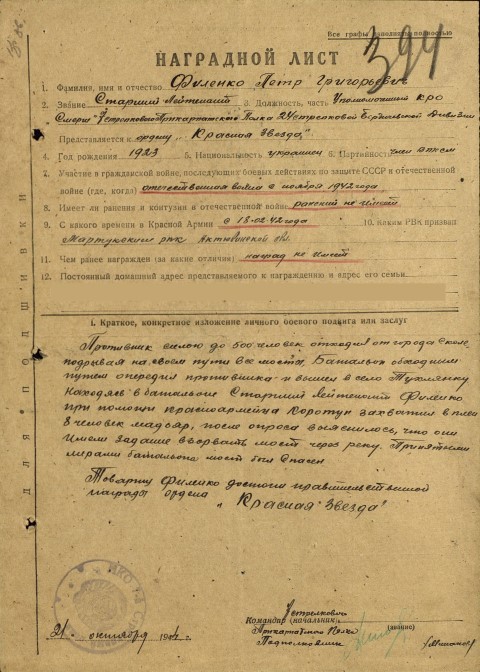 Все графы заполнять полностью
394
НАГРАДНОЙ ЛИСТ
1. Фамилия, имя и отчество Филенко Петр Григорьевич
2. Звание Старший Лейтенант 3. Должность, часть Уполномоченный КРО
Смерш Стрелкового Прикарпатского Полка 24 стрелковой Бердичевской Дивизии
Представляется к ордену „Красная Звезда"
4. Год рождения 1923 5. Национальность украинец 6. Партийность член ВЛКСМ
7. Участие в гражданской войне, последующих боевых действиях по защите СССР и отечественной
войне (где, когда) отечественная война с ноября 1942 года
8. Имеет ли ранения и контузии в отечественной войне ранений не имеет
9. С какого времени в Красной Армии с 18.02.42 года 10. Каким РВК призван
Мартукским рвк Актюбинской обл.
11. Чем ранее награжден (за какие отличия) наград не имеет
12. Постоянный домашний адрес представляемого к награждению и адрес его семьи
I. Краткое, конкретное изложение личного боевого подвига или заслуг
Противник силою до 500 человек отходил от города Сколе
подрывая на своем пути все моста, Батальон обходным
путем опередил противника и вышел в село Тухлянку
Находясь в батальоне Старший Лейтенант Филенко
при помощи красноармейца Коротун захватил в плен
8 человек мадьяр, после опроса выяснилось, что они
имели задание взорвать мост через реку. Принятыми
мерами батальона мост был спасен
Товарищ Филенко достоин правительственной
награды ордена „Красная Звезда"
ДЛЯ ПОДШИВКИ
21 октября 1944 г.
Командир (начальник) Стрелкового
Прикарпатского Полка
Подполковник (звание)